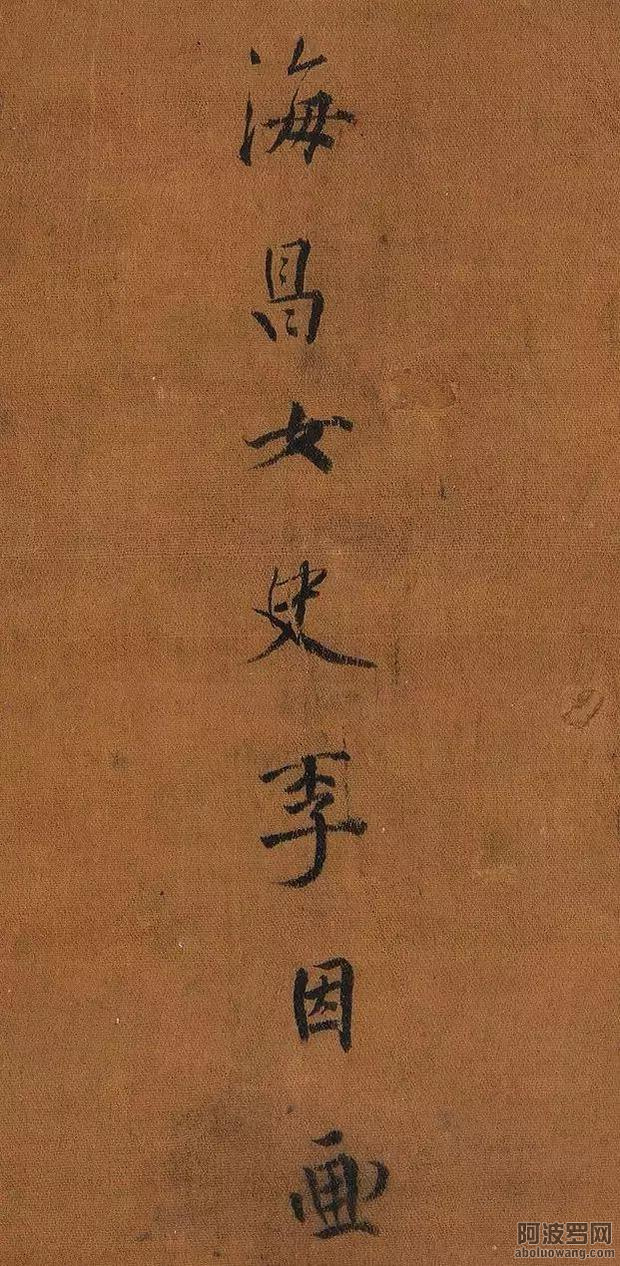 海昌女史李因画
阿波罗网
aboluowang.com